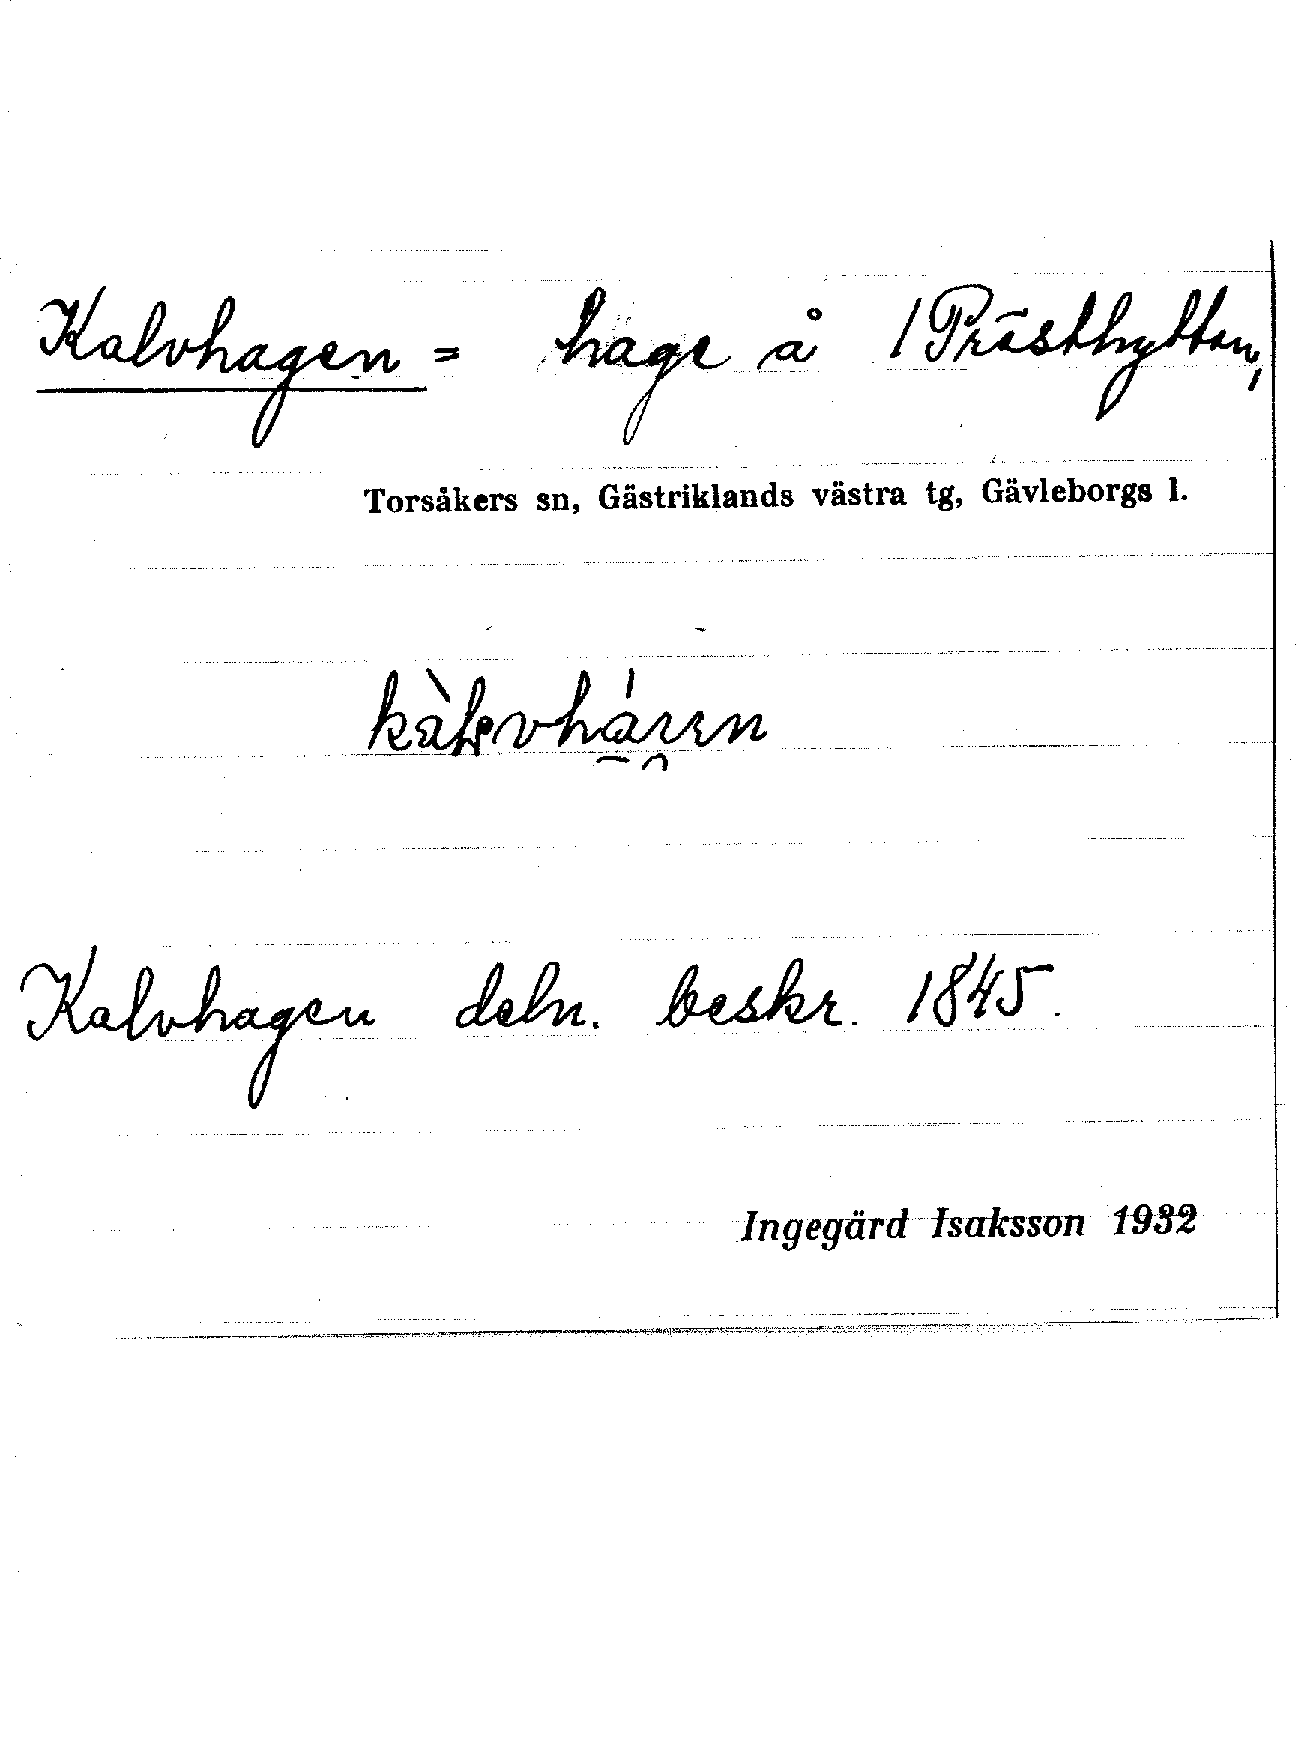 Kalvhagen = hage å 1 Prästhyttan,
Torsåkers sn, Gästriklands västra tg, Gävleborgs l.
Kalvhagen deln. beskr. 1845.
Ingegärd Isaksson 1932